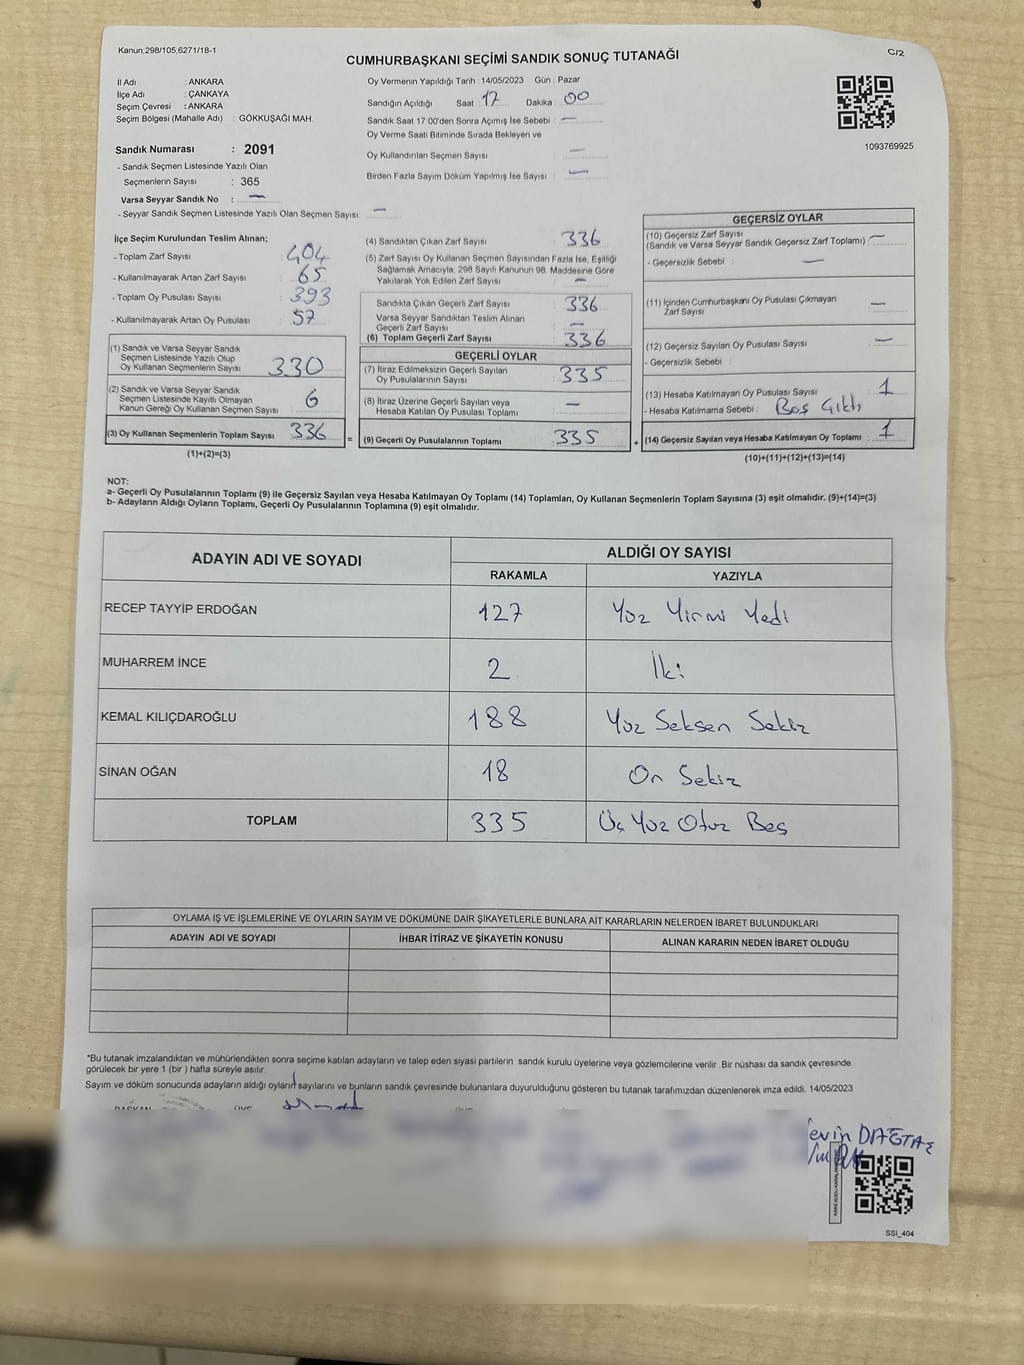 Kanun:298/105,6271/18-1
C/2
CUMHURBAŞKANI SEÇİMİ SANDIK SONUÇ TUTANAĞI
İl Adı : ANKARA
İlçe Adı : ÇANKAYA
Seçim Çevresi : ANKARA
Seçim Bölgesi (Mahalle Adı) : GÖKKUŞAĞI MAH.
Sandık Numarası : 2091
- Sandık Seçmen Listesinde Yazılı Olan
Seçmenlerin Sayısı : 365
Varsa Seyyar Sandık No : —
- Seyyar Sandık Seçmen Listesinde Yazılı Olan Seçmen Sayısı: —
Oy Vermenin Yapıldığı Tarih : 14/05/2023 Gün : Pazar
Sandığın Açıldığı Saat : 17 Dakika : 00
Sandık Saat 17:00'den Sonra Açımış İse Sebebi : —
Oy Verme Saati Bitiminde Sırada Bekleyen ve
Oy Kullandırılan Seçmen Sayısı : —
Birden Fazla Sayım Döküm Yapılmış İse Sayısı : —
1093769925
İlçe Seçim Kurulundan Teslim Alınan;
- Toplam Zarf Sayısı : 404
- Kullanılmayarak Artan Zarf Sayısı : 65
- Toplam Oy Pusulası Sayısı : 393
- Kullanılmayarak Artan Oy Pusulası : 57
(1) Sandık ve Varsa Seyyar Sandık
Seçmen Listesinde Yazılı Olup
Oy Kullanan Seçmenlerin Sayısı 330
(2) Sandık ve Varsa Seyyar Sandık
Seçmen Listesinde Kayıtlı Olmayan
Kanun Gereği Oy Kullanan Seçmen Sayısı 6
(3) Oy Kullanan Seçmenlerin Toplam Sayısı 336
(1)+(2)=(3)
(4) Sandıktan Çıkan Zarf Sayısı : 336
(5) Zarf Sayısı Oy Kullanan Seçmen Sayısından Fazla İse, Eşitliği
Sağlamak Amacıyla; 298 Sayılı Kanunun 98. Maddesine Göre
Yakılarak Yok Edilen Zarf Sayısı : —
Sandıkta Çıkan Geçerli Zarf Sayısı : 336
Varsa Seyyar Sandıktan Teslim Alınan
Geçerli Zarf Sayısı : —
(6) Toplam Geçerli Zarf Sayısı : 336
GEÇERLİ OYLAR
(7) İtiraz Edilmeksizin Geçerli Sayılan
Oy Pusulalarının Sayısı : 335
(8) İtiraz Üzerine Geçerli Sayılan veya
Hesaba Katılan Oy Pusulası Toplamı : —
= (9) Geçerli Oy Pusulalarının Toplamı : 335
GEÇERSİZ OYLAR
(10) Geçersiz Zarf Sayısı
(Sandık ve Varsa Seyyar Sandık Geçersiz Zarf Toplamı) : —
- Geçersizlik Sebebi : —
(11) İçinden Cumhurbaşkanı Oy Pusulası Çıkmayan
Zarf Sayısı : —
(12) Geçersiz Sayılan Oy Pusulası Sayısı : —
- Geçersizlik Sebebi :
(13) Hesaba Katılmayan Oy Pusulası Sayısı : 1
- Hesaba Katılmama Sebebi : Boş Çıktı
+ (14) Geçersiz Sayılan veya Hesaba Katılmayan Oy Toplamı : 1
(10)+(11)+(12)+(13)=(14)
NOT:
a- Geçerli Oy Pusulalarının Toplamı (9) ile Geçersiz Sayılan veya Hesaba Katılmayan Oy Toplamı (14) Toplamları, Oy Kullanan Seçmenlerin Toplam Sayısına (3) eşit olmalıdır. (9)+(14)=(3)
b- Adayların Aldığı Oyların Toplamı, Geçerli Oy Pusulalarının Toplamına (9) eşit olmalıdır.
ADAYIN ADI VE SOYADI ALDIĞI OY SAYISI
RAKAMLA YAZIYLA
RECEP TAYYİP ERDOĞAN 127 Yüz Yirmi Yedi
MUHARREM İNCE 2 İki
KEMAL KILIÇDAROĞLU 188 Yüz Seksen Sekiz
SİNAN OĞAN 18 On Sekiz
TOPLAM 335 Üç Yüz Otuz Beş
OYLAMA İŞ VE İŞLEMLERİNE VE OYLARIN SAYIM VE DÖKÜMÜNE DAİR ŞİKAYETLERLE BUNLARA AİT KARARLARIN NELERDEN İBARET BULUNDUKLARI
ADAYIN ADI VE SOYADI İHBAR İTİRAZ VE ŞİKAYETİN KONUSU ALINAN KARARIN NEDEN İBARET OLDUĞU
*Bu tutanak imzalandıktan ve mühürlendikten sonra seçime katılan adayların ve talep eden siyasi partilerin sandık kurulu üyelerine veya gözlemcilerine verilir. Bir nüshası da sandık çevresinde
görülecek bir yere 1 (bir ) hafta süreyle asılır.
Sayım ve döküm sonucunda adayların aldığı oyların sayılarını ve bunların sandık çevresinde bulunanlara duyurulduğunu gösteren bu tutanak tarafımızdan düzenlenerek imza edildi. 14/05/2023
BAŞKAN ÜYE
evin DAĞTAŞ
SSI_404